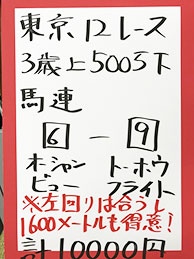 東京12レース
3歳上500万下
馬連
6－9
オーシャン トーホウ
ビュー フライト
※左回りは合うし
1600メートルも得意!
計10000円